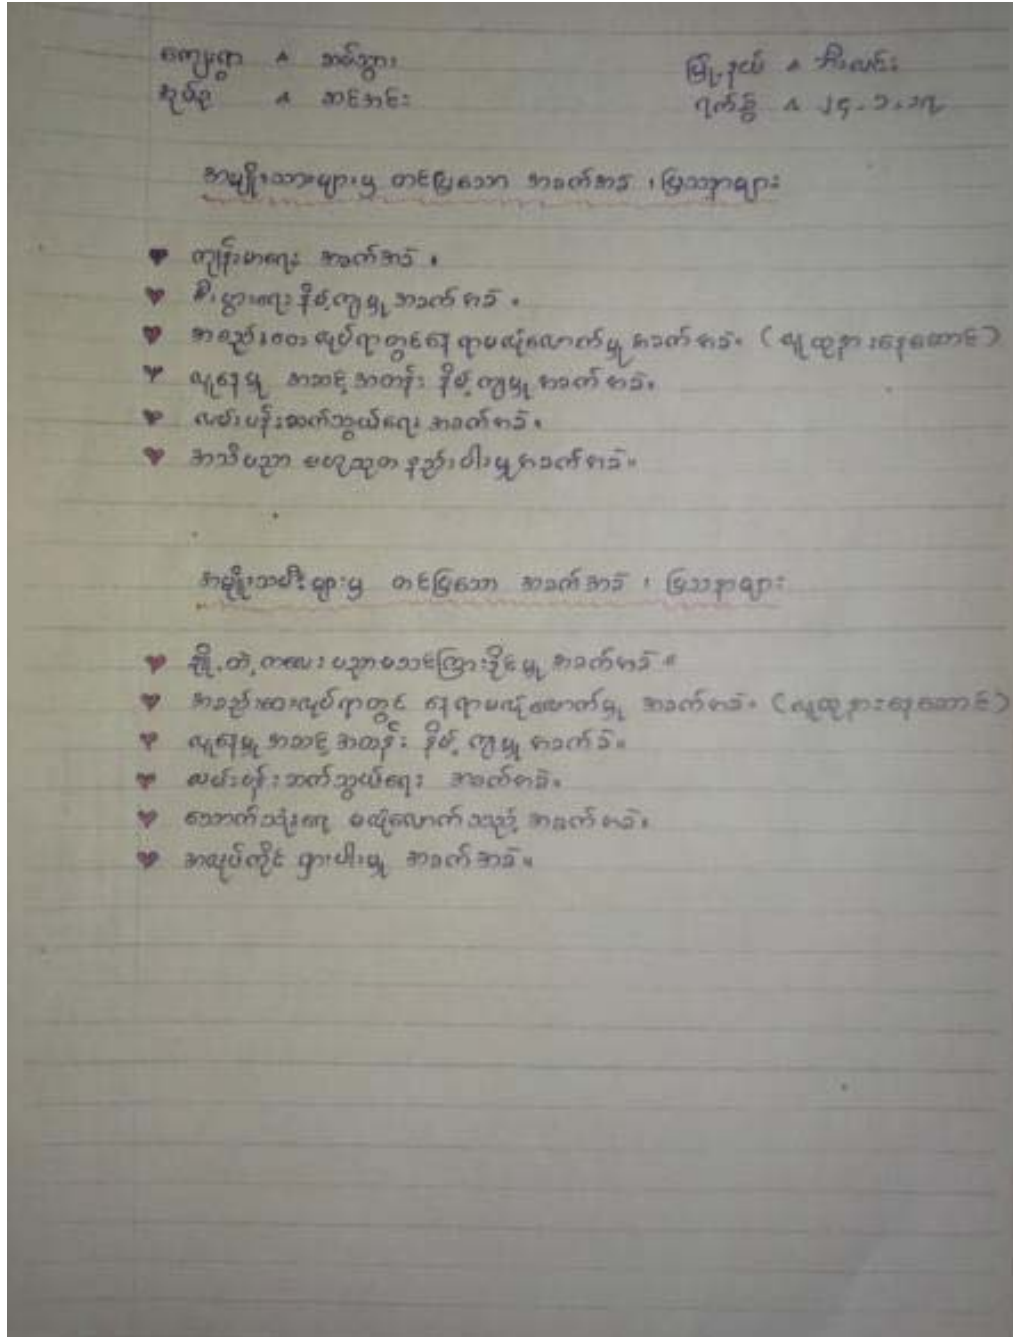 ကျေးရွာ - အပ်သွား မြို့နယ် - ဘီးလင်း
အုပ်စု - ဆင်အင်း ရက်စွဲ - ၂၄.၁.၁၇
အမျိုးသားများမှ တင်ပြသော အခက်အခဲ ၊ ပြဿနာများ
ကျန်းမာရေး အခက်အခဲ ။
စီးပွားရေး နိမ့်ကျမှု အခက်အခဲ ။
အစည်းဝေး လုပ်ရာတွင်နေရာမလုံလောက်မှု အခက်အခဲ။ (လူထုနားနေဆောင်)
လူနေမှု အဆင့်အတန်း နိမ့်ကျမှု အခက်အခဲ။
လမ်းပန်းဆက်သွယ်ရေး အခက်အခဲ ။
အသိပညာ ဗဟုသုတ နည်းပါးမှု အခက်အခဲ။
အမျိုးသမီးများမှ တင်ပြသော အခက်အခဲ ၊ ပြဿနာများ
ချို့တဲ့ကလေး ပညာမသင်ကြားနိုင်မှု အခက်အခဲ ။
အစည်းဝေးလုပ်ရာတွင် နေရာမလုံလောက်မှု အခက်အခဲ။ (လူထုနားနေဆောင်)
လူနေမှုအဆင့်အတန်း နိမ့်ကျမှု အခက်ခဲ။
လမ်းပန်းဆက်သွယ်ရေး အခက်အခဲ။
သောက်သုံးရေ မလုံလောက်သည့် အခက်အခဲ။
အလုပ်ကိုင် ရှားပါးမှု အခက်အခဲ။